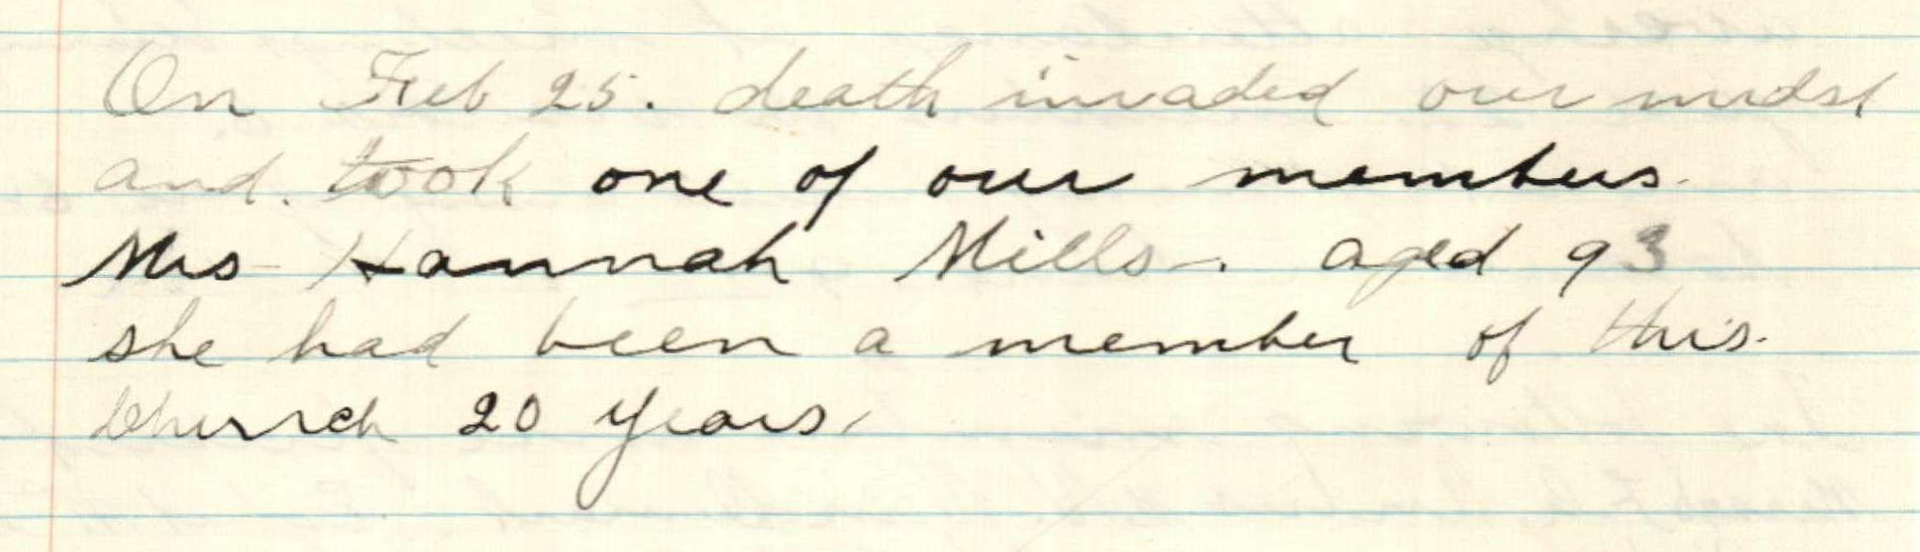 On Feb 25. death invaded our midst
and. took one of our members.
Mrs Hannah Mills. aged 93
she had been a member of this.
Church 20 years.